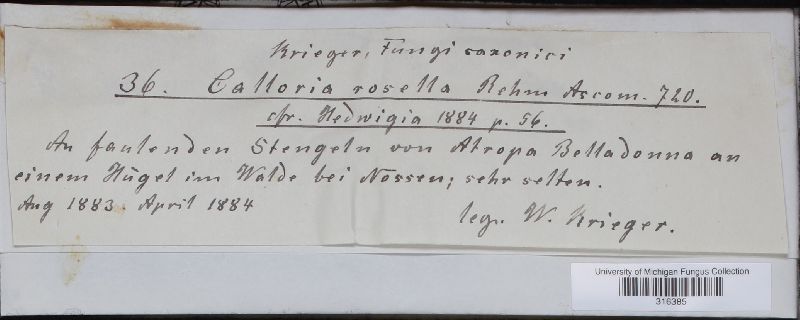 Krieger, Fungi saxonici
36. Calloria rosella Rehm Ascom. 720.
cfr. Hedwigia 1884 p. 56.
An faulenden Stengeln von Atropa Belladonna an
einem Hügel im Walde bei Nossen; sehr selten.
Aug 1883. April 1884
leg. W. Krieger.
University of Michigan Fungus Collection
316385